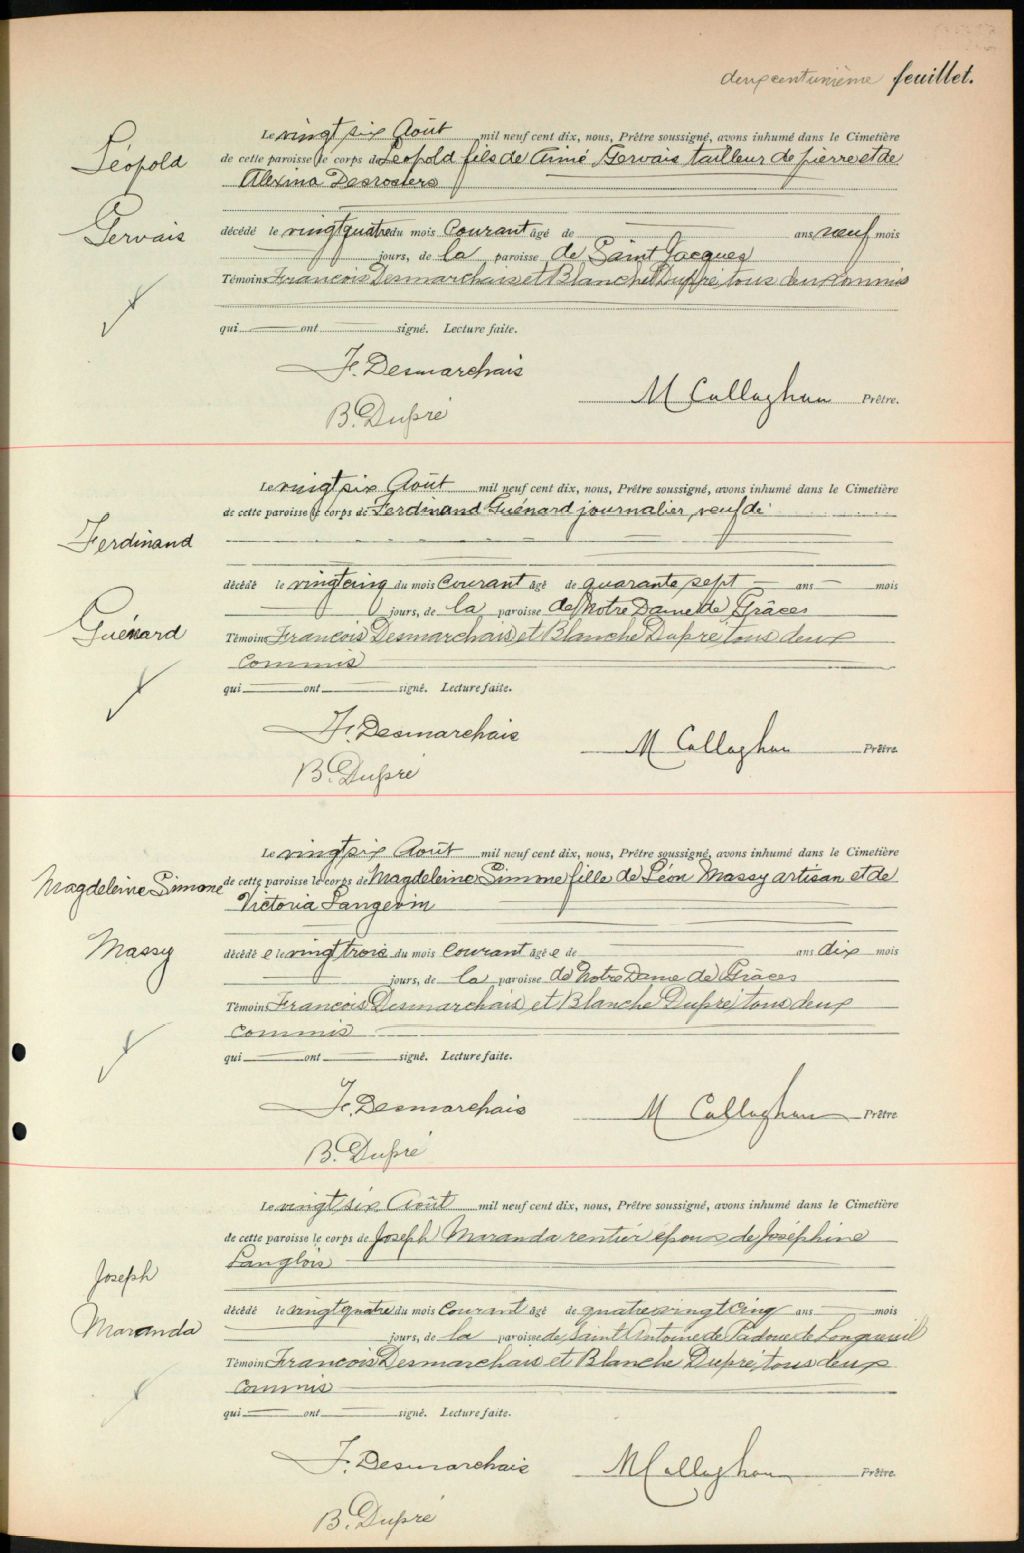 deux cent unième feuillet.
Léopold
Gervais
Le vingt six Août mil neuf cent dix, nous, Prêtre soussigné, avons inhumé dans le Cimetière
de cette paroisse le corps de Léopold fils de Aimé Gervais tailleur de pierre et de
Alexina Desrosiers
décédé le vingt quatre du mois courant âgé de ans neuf mois
jours, de la paroisse de Saint Jacques
Témoins Francois Desmarchais et Blanche Dupré, tous deux commis
qui ont signé. Lecture faite.
F. Desmarchais
B. Dupré
M Callaghan Prêtre.
Ferdinand
Guénard
Le vingt six Août mil neuf cent dix, nous, Prêtre soussigné, avons inhumé dans le Cimetière
de cette paroisse le corps de Ferdinand Guénard journalier veuf de
décédé le vingt cinq du mois courant âgé de quarante sept ans mois
jours, de la paroisse de Notre Dame de Grâces
Témoins Francois Desmarchais et Blanche Dupré tous deux
commis
qui ont signé. Lecture faite.
F. Desmarchais
B. Dupré
M Callaghan Prêtre.
Magdeleine Simone
Massy
Le vingt six Août mil neuf cent dix, nous, Prêtre soussigné, avons inhumé dans le Cimetière
de cette paroisse le corps de Magdeleine Simone fille de Léon Massy artisan et de
Victoria Langevin
décédé e le vingt trois du mois courant âgé e de ans dix mois
jours, de la paroisse de Notre Dame de Grâces
Témoins Francois Desmarchais et Blanche Dupré tous deux
commis
qui ont signé. Lecture faite.
F. Desmarchais
B. Dupré
M Callaghan Prêtre
Joseph
Maranda
Le vingt six Août mil neuf cent dix, nous, Prêtre soussigné, avons inhumé dans le Cimetière
de cette paroisse le corps de Joseph Maranda rentier époux de Joséphine
Langlois
décédé le vingt quatre du mois courant âgé de quatre vingt cinq ans mois
jours, de la paroisse de Saint Antoine de Padoue de Longueuil
Témoins Francois Desmarchais et Blanche Dupré, tous deux
commis
qui ont signé. Lecture faite.
F. Desmarchais
B. Dupré
M Callaghan Prêtre.